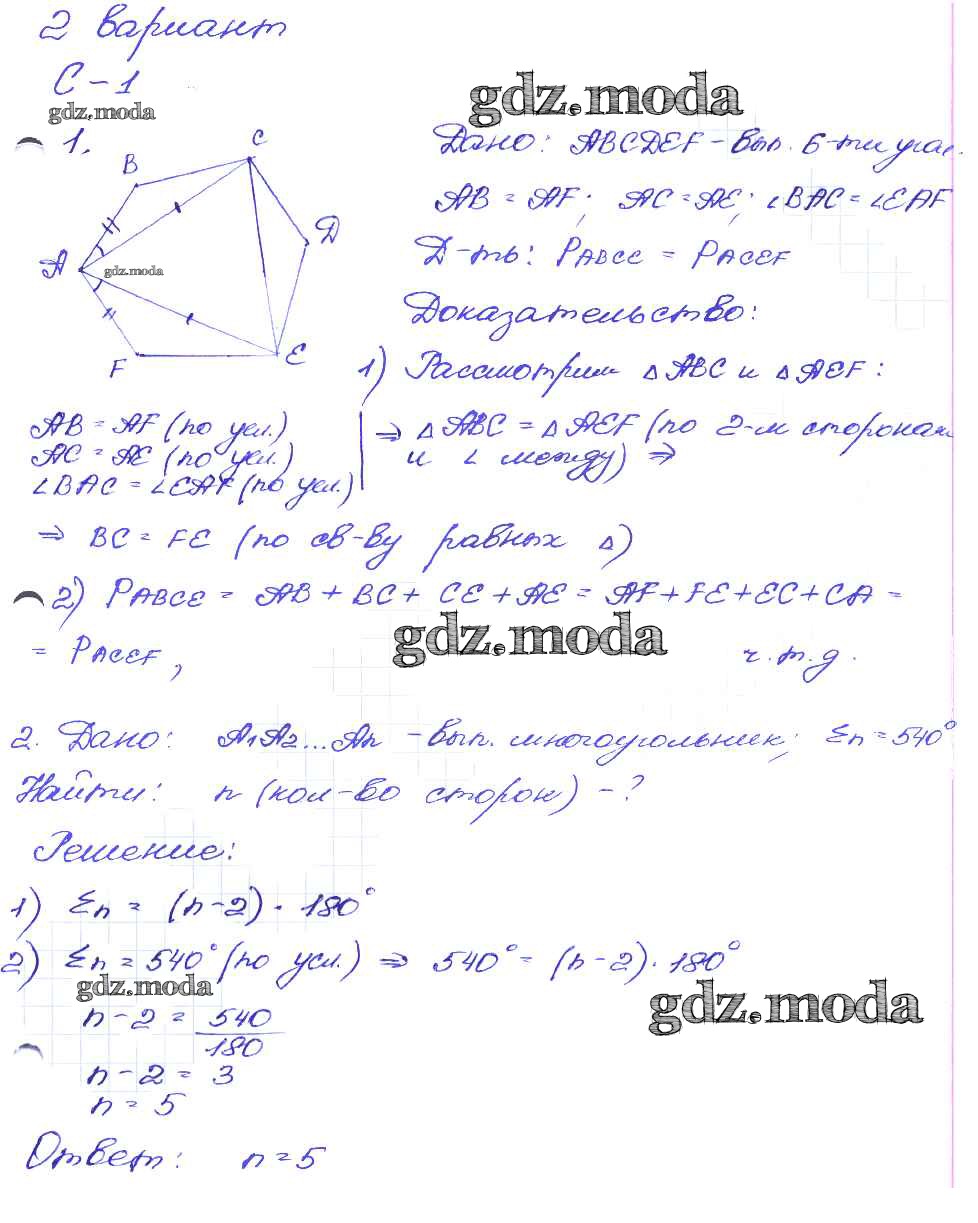 2 вариант
С-1
gdz.moda
gdz.moda
1.
B
C
D
A
gdz.moda
F
E
Дано: ABCDEF - вып. 6-тиугол.
AB = AF; AC = AE; ∠BAC = ∠EAF
Д-ть: PABCE = PACEF
Доказательство:
1) Рассмотрим △ABC и △AEF:
AB = AF (по усл.)
AC = AE (по усл.)
∠BAC = ∠EAF (по усл.)
⇒ △ABC = △AEF (по 2-м сторонам
и ∠ между) ⇒
⇒ BC = FE (по св-ву равных △)
2) PABCE = AB + BC + CE + AE = AF + FE + EC + CA =
gdz.moda
= PACEF, ч.т.д.
2. Дано: A1A2...An - вып. многоугольник; Σn = 540°
Найти: n (кол-во сторон) - ?
Решение:
1) Σn = (n-2) · 180°
2) Σn = 540° (по усл.) ⇒ 540° = (n-2) · 180°
gdz.moda
gdz.moda
n - 2 = 540/180
n - 2 = 3
n = 5
Ответ: n = 5